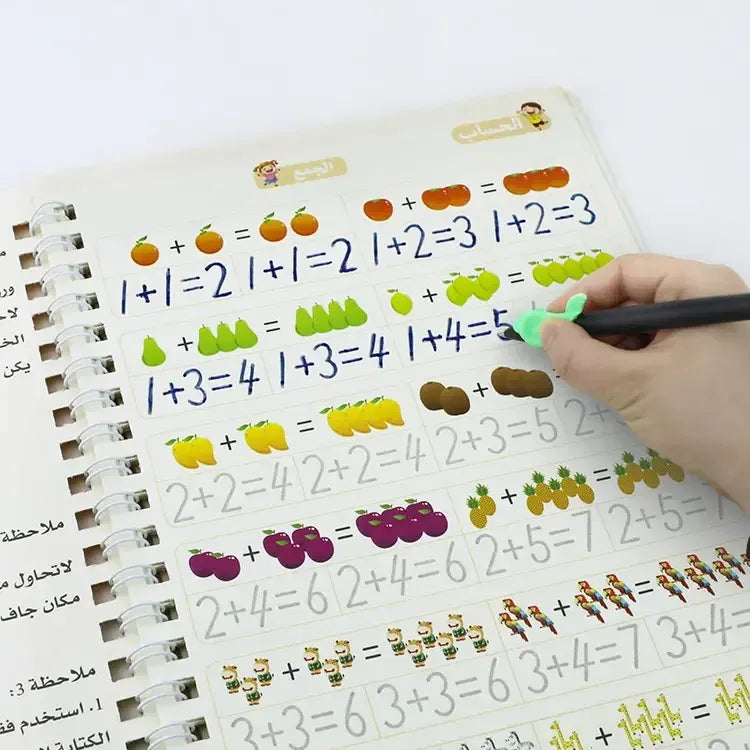 الحساب
الجمع
+ = + =
1+1=2 1+1=2 1+2=3 1+2=3
+ = + =
1+3=4 1+3=4 1+4=5
+ = + =
2+2=4 2+2=4 2+3=5 2+
+ = + =
2+4=6 2+4=6 2+5=7 2+5=7
+ = + =
3+3=6 3+3=6 3+4=7 3+4=
+
يكن
ملاحظة
لاتحاول
مكان جاف
ملاحظة 3:
1. استخدم
الكتابة